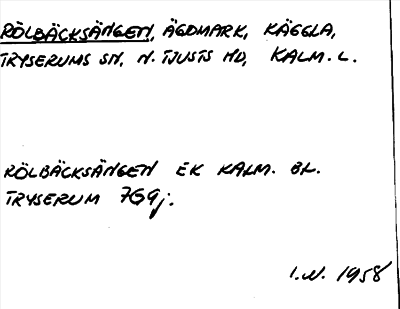 RÖLBÄCKSÄNGEN, ÄGOMARK, KÄGGLA,
TRYSERUMS SN, N. TJUSTS HD, KALM. L.
RÖLBÄCKSÄNGEN EK KALM. BL.
TRYSERUM 7G9j.
I.N. 1958